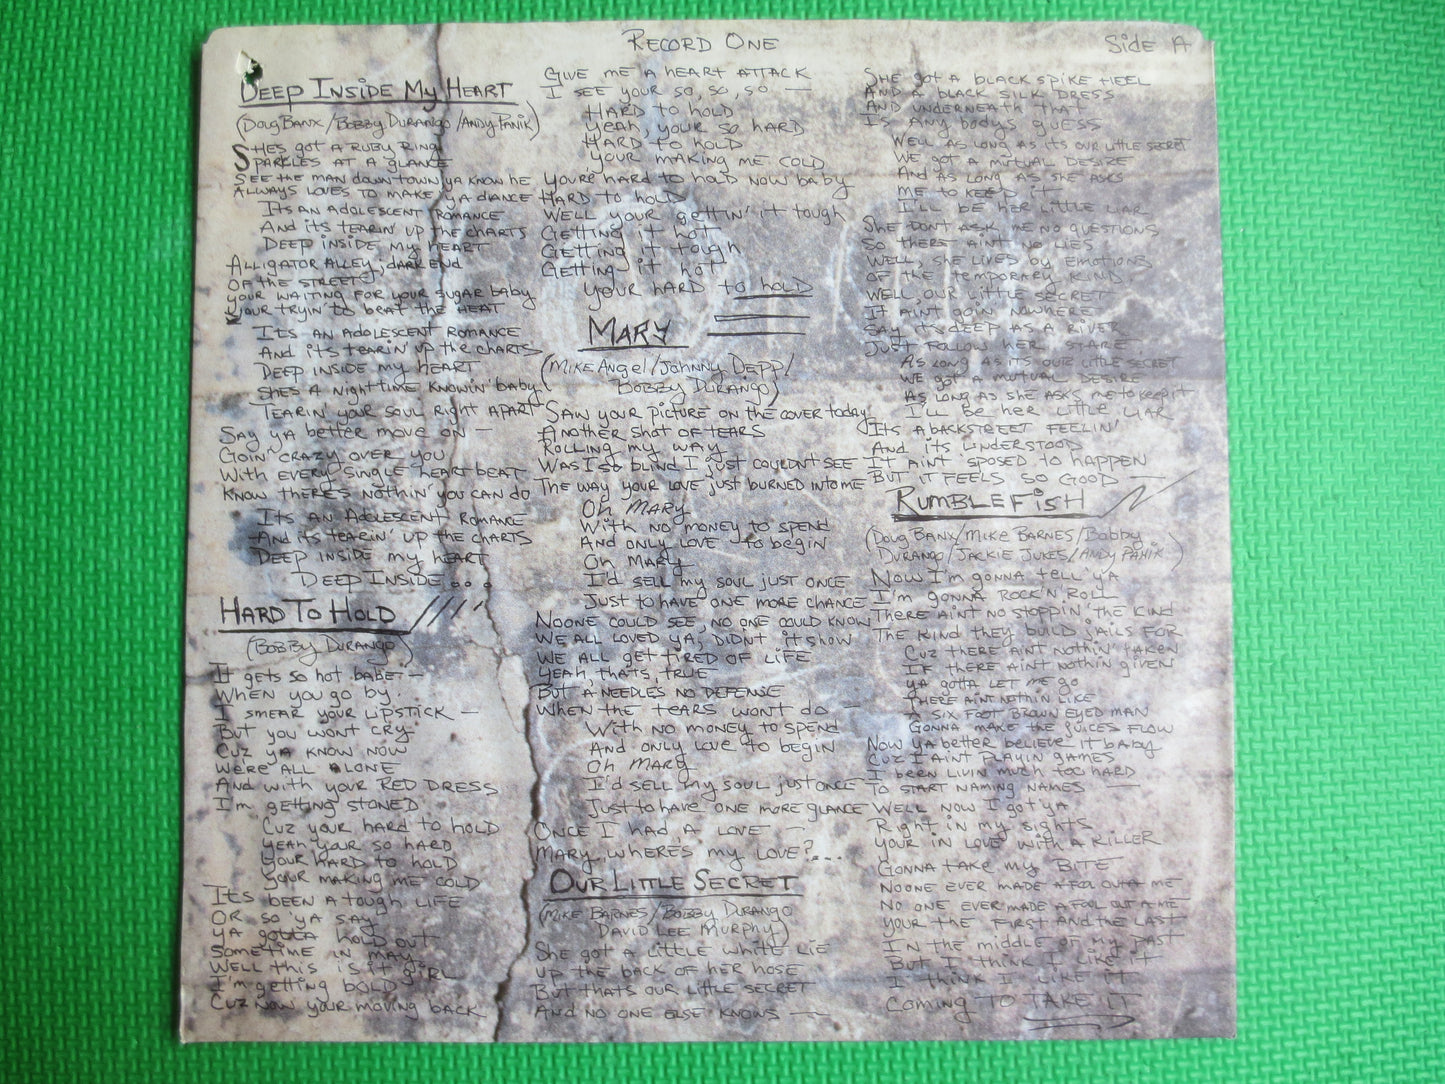 RECORD ONE
Side A
DEEP INSIDE MY HEART
(DOUG BANX/BOBBY DURANGO/ANDY PANIK)
SHES GOT A RUBY RING
SPARKLES AT A GLANCE
SEE THE MAN DOWNTOWN YA KNOW HE
ALWAYS LOVES TO MAKE YA DANCE
ITS AN ADOLESCENT ROMANCE
AND ITS TEARIN' UP THE CHARTS
DEEP INSIDE MY HEART
ALLIGATOR ALLEY, DARK END
OF THE STREET
YOUR WAITING FOR YOUR SUGAR BABY
YOUR TRYIN' TO BEAT THE HEAT
ITS AN ADOLESCENT ROMANCE
AND ITS TEARIN' UP THE CHARTS
DEEP INSIDE MY HEART
SHES A NIGHTTIME KNOWIN' BABY
TEARIN' YOUR SOUL RIGHT APART
SAY YA BETTER MOVE ON —
GOIN' CRAZY OVER YOU
WITH EVERY SINGLE HEARTBEAT
KNOW THERES NOTHIN' YOU CAN DO
ITS AN ADOLESCENT ROMANCE
AND ITS TEARIN' UP THE CHARTS
DEEP INSIDE MY HEART
DEEP INSIDE...
HARD TO HOLD
(BOBBY DURANGO)
IT GETS SO HOT BABE —
WHEN YOU GO BY
I SMEAR YOUR LIPSTICK —
BUT YOU WONT CRY
CUZ YA KNOW NOW
WE'RE ALL ALONE
AND WITH YOUR RED DRESS
I'M GETTING STONED
CUZ YOUR HARD TO HOLD
YEAH YOUR SO HARD
YOUR HARD TO HOLD
YOUR MAKING ME COLD
ITS BEEN A TOUGH LIFE
OR SO YA SAY
YA GOTTA HOLD OUT
SOMETIME IN MAY
WELL THIS IS IT GIRL
I'M GETTING BOLD
CUZ NOW YOUR MOVING BACK
GIVE ME A HEART ATTACK
I SEE YOUR SO, SO, SO —
HARD TO HOLD
YEAH, YOUR SO HARD
HARD TO HOLD
YOUR MAKING ME COLD
YOURE HARD TO HOLD NOW BABY
HARD TO HOLD
WELL YOUR GETTIN' IT TOUGH
GETTING IT HOT
GETTING IT TOUGH
GETTING IT HOT
YOUR HARD TO HOLD
MARY
(MIKE ANGEL/JOHNNY DEPP/
BOBBY DURANGO)
SAW YOUR PICTURE ON THE COVER TODAY
ANOTHER SHOT OF TEARS
ROLLING MY WAY
WAS I SO BLIND I JUST COULDNT SEE
THE WAY YOUR LOVE JUST BURNED INTO ME
OH MARY
WITH NO MONEY TO SPEND
AND ONLY LOVE TO BEGIN
OH MARY
I'D SELL MY SOUL JUST ONCE
JUST TO HAVE ONE MORE CHANCE
NOONE COULD SEE, NO ONE COULD KNOW
WE ALL LOVED YA, DIDNT IT SHOW
WE ALL GET TIRED OF LIFE
YEAH, THATS TRUE
BUT A NEEDLES NO DEFENSE
WHEN THE TEARS WONT DO —
WITH NO MONEY TO SPEND
AND ONLY LOVE TO BEGIN
OH MARY
I'D SELL MY SOUL JUST ONCE
JUST TO HAVE ONE MORE GLANCE
ONCE I HAD A LOVE —
MARY WHERE'S MY LOVE?...
OUR LITTLE SECRET
(MIKE BARNES/BOBBY DURANGO
DAVID LEE MURPHY)
SHE GOT A LITTLE WHITE LIE
UP THE BACK OF HER HOSE
BUT THATS OUR LITTLE SECRET
AND NO ONE ELSE KNOWS —
SHE GOT A BLACK SPIKE HEEL
AND A BLACK SILK DRESS
AND UNDERNEATH THAT
IS ANY BODYS GUESS
WELL AS LONG AS ITS OUR LITTLE SECRET
WE GOT A MUTUAL DESIRE
AND AS LONG AS SHE ASKS
ME TO KEEP IT
I'LL BE HER LITTLE LIAR
SHE DON'T ASK ME NO QUESTIONS
SO THERE AIN'T NO LIES
WELL, SHE LIVED BY EMOTIONS
OF THE TEMPORARY KIND
WELL, OUR LITTLE SECRET
IT AINT GOIN NOWHERE
SAY ITS DEEP AS A RIVER
JUST FOLLOW HER STARE
AS LONG AS ITS OUR LITTLE SECRET
WE GOT A MUTUAL DESIRE
AS LONG AS SHE ASKS ME TO KEEP IT
I'LL BE HER LITTLE LIAR
ITS A BACKSTREET FEELIN'
AND ITS UNDERSTOOD
IT AINT SPOSED TO HAPPEN
BUT IT FEELS SO GOOD —
RUMBLEFISH
(DOUG BANX/MIKE BARNES/BOBBY
DURANGO/JACKIE JUKES/ANDY PANIK)
NOW I'M GONNA TELL YA
I'M GONNA ROCK'N'ROLL
THERE AINT NO STOPPIN' THE KIND
THE KIND THEY BUILD JAILS FOR
CUZ THERE AINT NOTHIN' TAKEN
IF THERE AINT NOTHIN GIVEN
YA GOTTA LET ME GO
THERE AINT NOTHIN LIKE
A SIX FOOT BROWN EYED MAN
GONNA MAKE THE JUICES FLOW
NOW YA BETTER BELIEVE IT BABY
CUZ I AINT PLAYIN GAMES
I BEEN LIVIN MUCH TOO HARD
TO START NAMING NAMES —
WELL NOW I GOT YA
RIGHT IN MY SIGHTS
YOUR IN LOVE WITH A KILLER
GONNA TAKE MY BITE
NOONE EVER MADE A FOOL OUTA ME
NO ONE EVER MADE A FOOL OUT A ME
YOUR THE FIRST AND THE LAST
IN THE MIDDLE OF MY PAST
BUT I THINK I LIKE IT
I THINK I LIKE IT
COMING TO TAKE IT